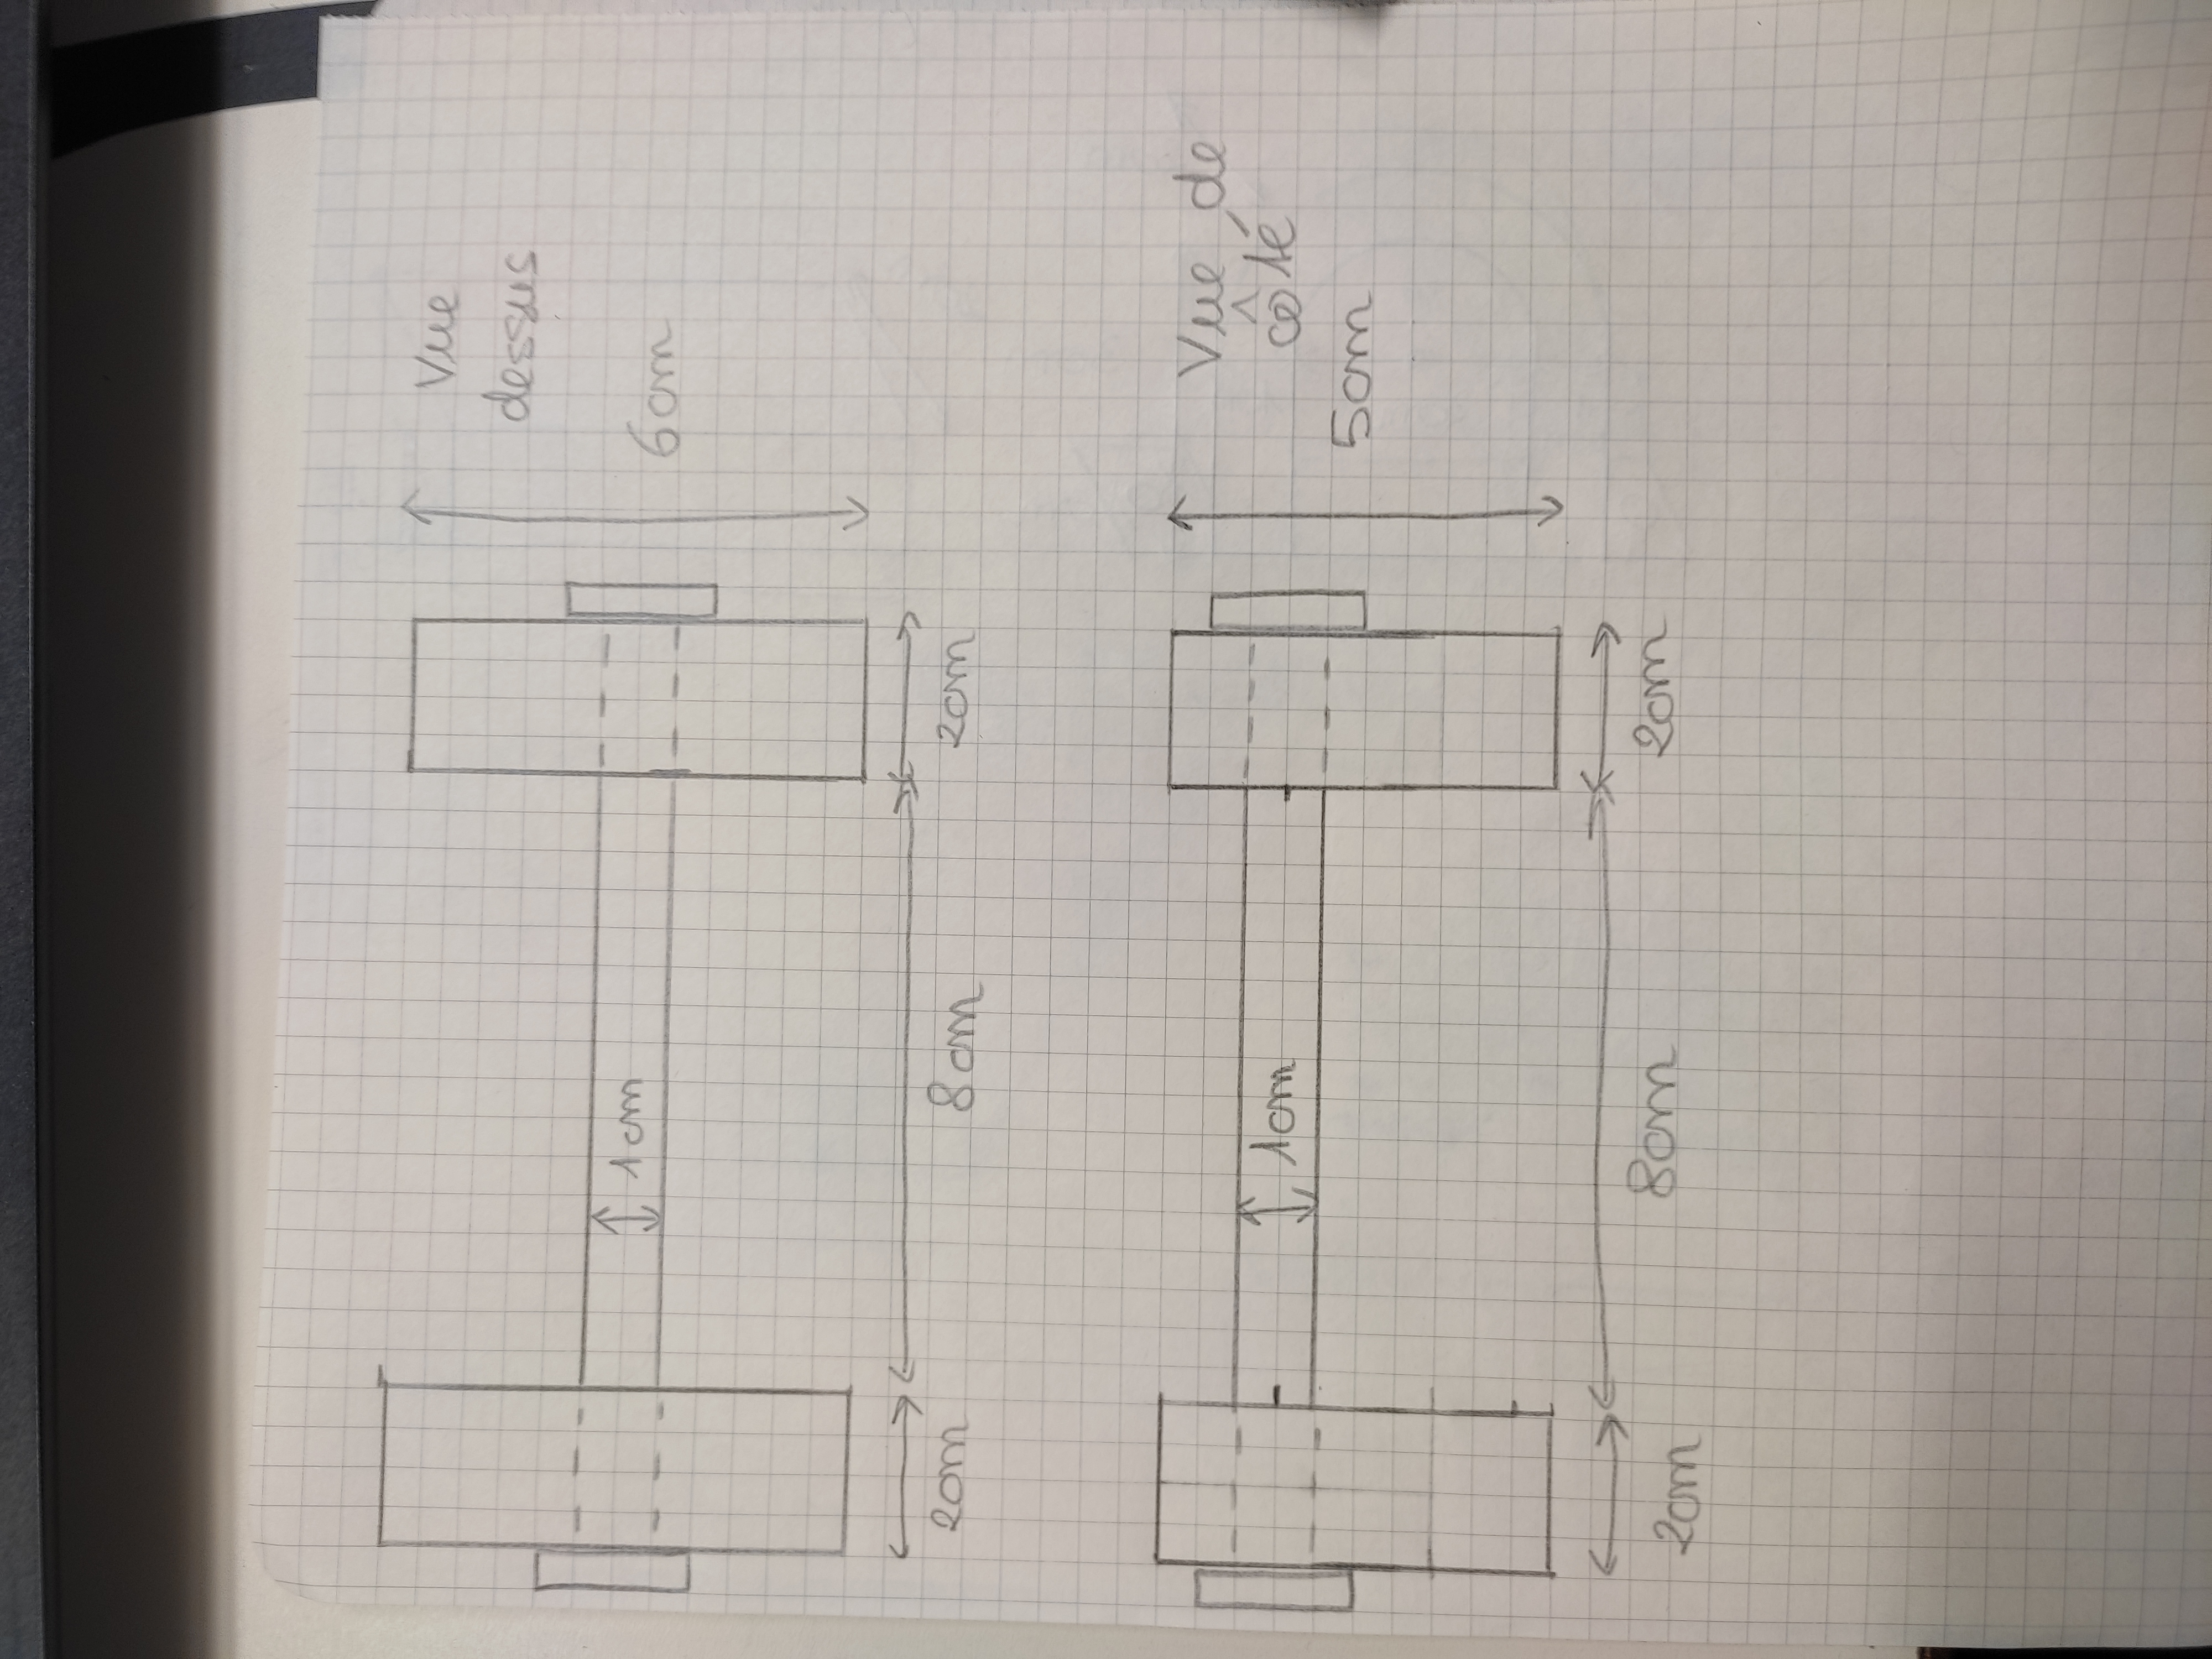 Vue
dessus
1cm
6cm
2cm
8cm
2cm
Vue de
côté
1cm
5cm
2cm
8cm
2cm